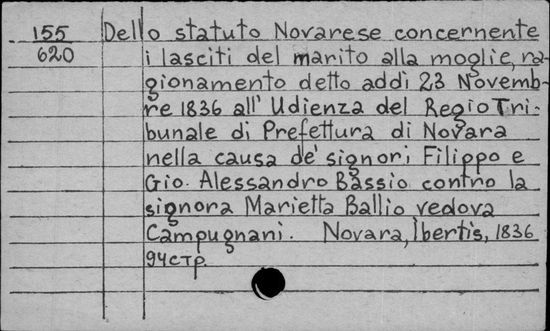 155 Dello statuto Novarese concernente
620 i lasciti del marito alla moglie, ra-
gionamento detto addi 23 Novemb-
re 1836 all' Udienza del Regio Tri-
bunale di Prefettura di Novara
nella causa de' signori Filippo e
Gio. Alessandro Bassio contro la
signora Marietta Ballio vedova
Campugnani. Novara, Ibertis, 1836
94 стр.